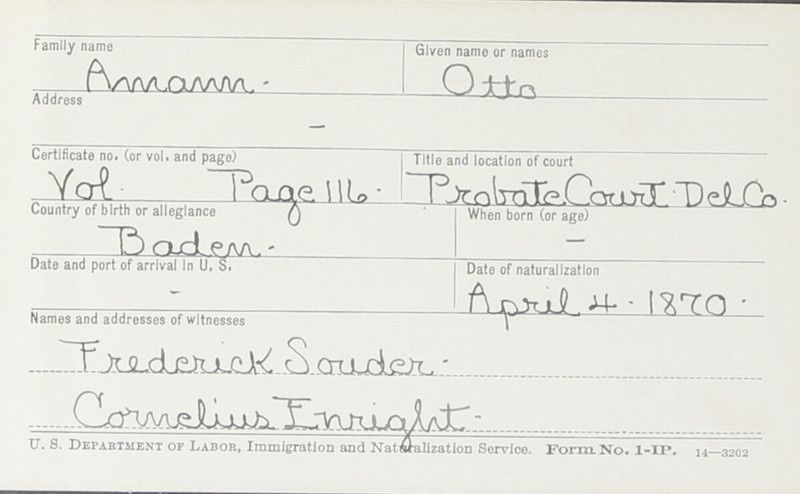 Family name Given name or names
Amann. Otto
Address
–
Certificate no. (or vol. and page) Title and location of court
Vol. Page 116. Probate Court. Del Co.
Country of birth or allegiance When born (or age)
Baden. –
Date and port of arrival in U. S. Date of naturalization
– April 4. 1870.
Names and addresses of witnesses
Frederick Souder.
Cornelius Enright.
U. S. DEPARTMENT OF LABOR, Immigration and Naturalization Service. Form No. 1-IP. 14—3202